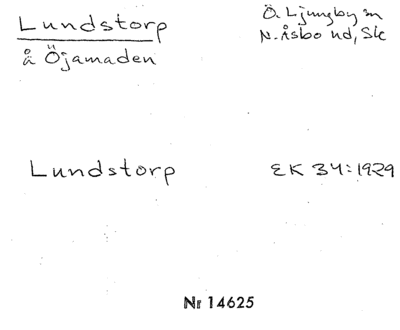 Lundstorp
å Öjamaden
Ö. Ljungby sn
N. Åsbo hd, Sk
Lundstorp
EK 34:1929
Nr 14625